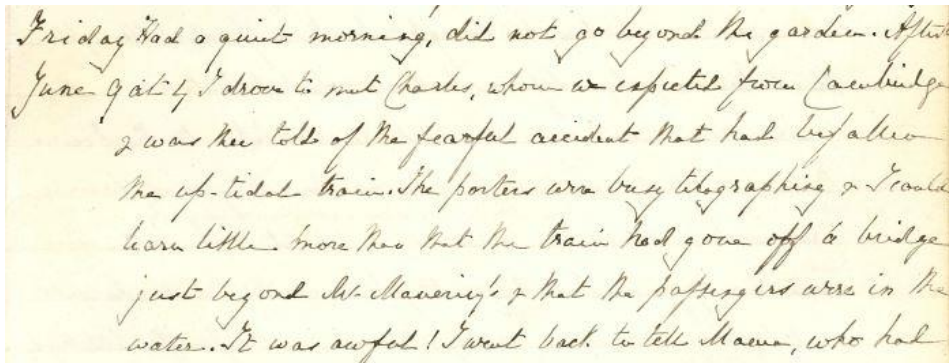 Friday Had a quiet morning, did not go beyond the garden. After
June 9 at 4 I drove to meet Charles, whom we expected from Cambridge
& was then told of the fearful accident that had befallen
the up-tidal train. The porters were busy telegraphing & I could
learn little more than that the train had gone off a bridge
just beyond Mr. & that the passengers were in the
water. It was awful! I went back to tell Mama, who had